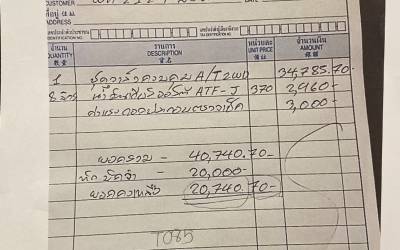 CUSTOMER
DATE
ที่อยู่
ADDRESS
จำนวน รายการ หน่วยละ จำนวนเงิน
QUANTITY DESCRIPTION UNIT PRICE AMOUNT
數量 貨名 價錢
1 ชุดวาล์วควบคุม A/T 2WD 34,785.70-
8 ลิตร น้ำมันเกียร์ออโต้ ATF-J 370 2,960-
ค่าแรงถอดประกอบตรวจเช็ค 3,000-
ยอดรวม - 40,740.70-
หัก มัดจำ - 20,000-
ยอดคงเหลือ 20,740.70-
T085